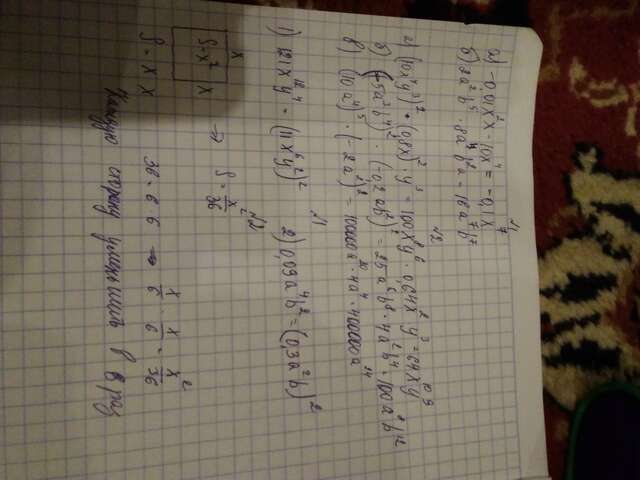 №1
а) -0,01x²x · 10x⁴ = -0,1x⁷
б) 2a²b⁵ · 8a⁴b²a = 16a⁷b⁷
№2
а) (10x⁴y³)² · (0,8x)² · y³ = 100x⁸y⁶ · 0,64x²y³ = 64x¹⁰y⁹
б) (-5a³b⁴)² · (-0,2ab²)² = 25a⁶b⁸ · 4a²b⁴ = 100a⁸b¹²
в) (10a⁴)⁵ · (-2a²)² = 100000a²⁰ · 4a⁴ = 400000a²⁴
№1
1) 121x¹²y⁴ = (11x⁶y²)² 2) 0,09a⁴b² = (0,3a²b)²
№2
x
S=x² x → S = x²/36
S = x · x 36 = 6 · 6 ⇒ x/6 · x/6 = x²/36
Каждую сторону уменьшить в 6 раз